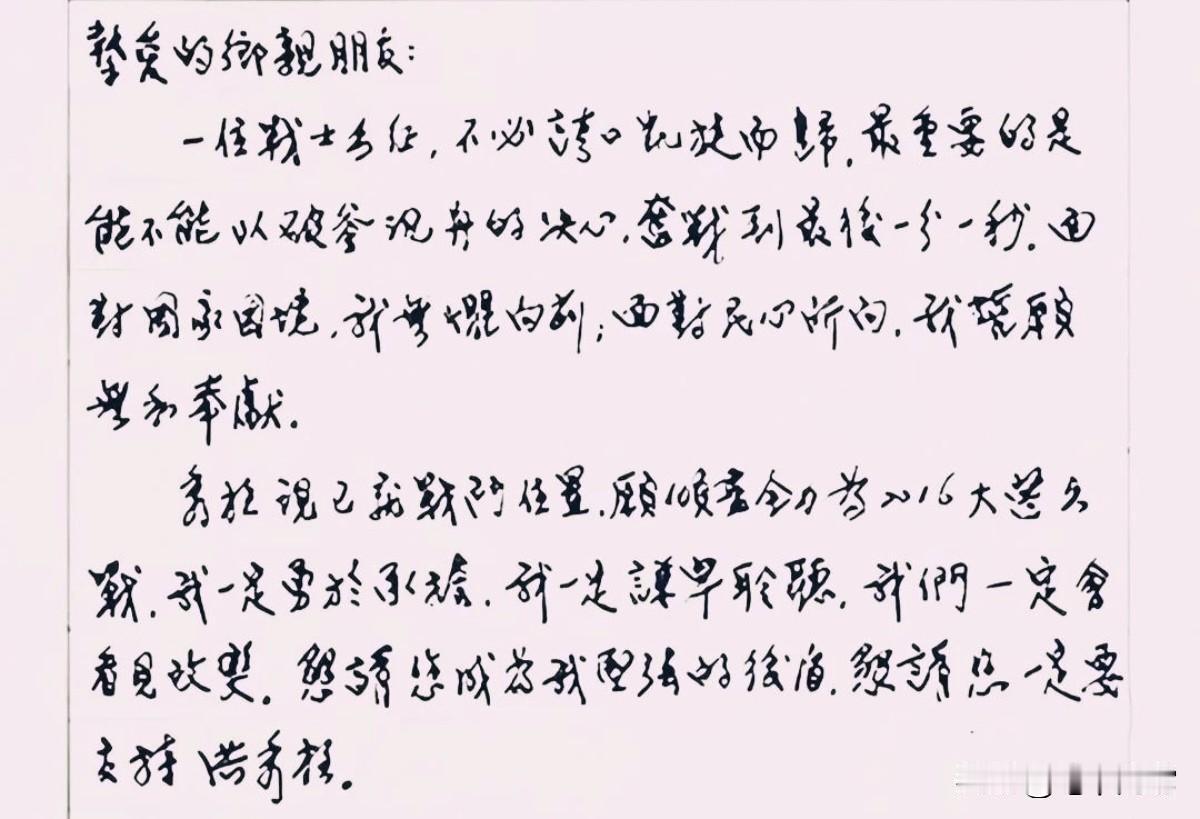 摯愛的鄉親朋友：
一位戰士出征，不必誇口凱旋而歸，最重要的是
能不能以破釜沉舟的决心，奮戰到最後一分一秒。面
對國家困境，我無懼向前；面對民心所向，我願
無私奉獻。
秀柱現已就戰鬥位置，願傾盡全力為2016大選出
戰，我一定勇於承擔，我一定謙卑聆聽，我們一定會
看見改變。懇請您成為我堅強的後盾，懇請您一定要
支持洪秀柱。